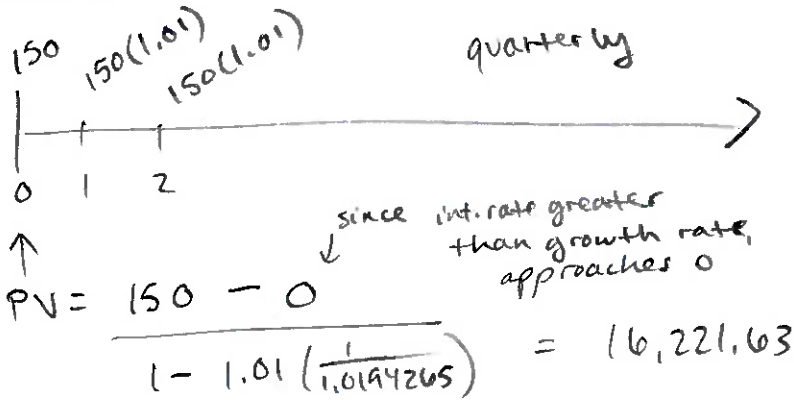 150 150(1.01) 150(1.01) quarterly
0 1 2
since int. rate greater
than growth rate,
approaches 0
PV = 150 - 0
1 - 1.01 (1/1.0194265) = 16,221.63